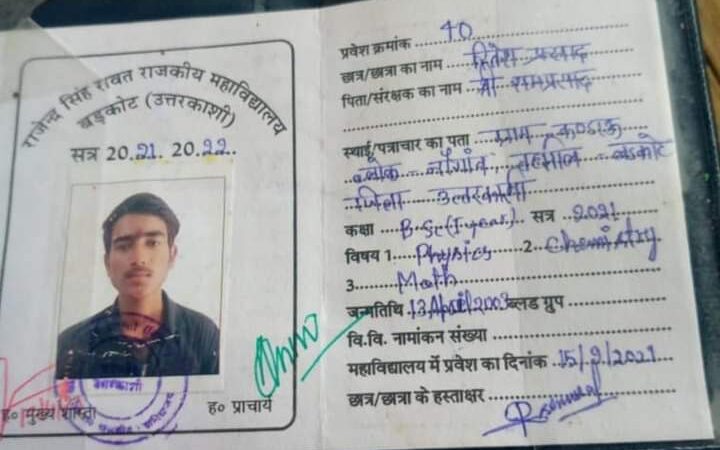 राजेन्द्र सिंह रावत राजकीय महाविद्यालय
बड़कोट (उत्तरकाशी)
सत्र 2021. 2022..
ह० मुख्य शास्ता
ह० प्राचार्य
प्रवेश क्रमांक 40
छात्र/छात्रा का नाम हितेश प्रसाद
पिता/संरक्षक का नाम श्री रामप्रसाद
स्थाई/पत्राचार का पता ग्राम
ब्लोक नौगांव, तहसील बड़कोट
जिला उत्तरकाशी
कक्षा B.Sc(I year) सत्र 2021
विषय 1 Physics 2 Chemistry
3 Math
जन्मतिथि 13 April 2003 ब्लड ग्रुप
वि.वि. नामांकन संख्या
महाविद्यालय में प्रवेश का दिनांक 15/9/2021
छात्र/छात्रा के हस्ताक्षर